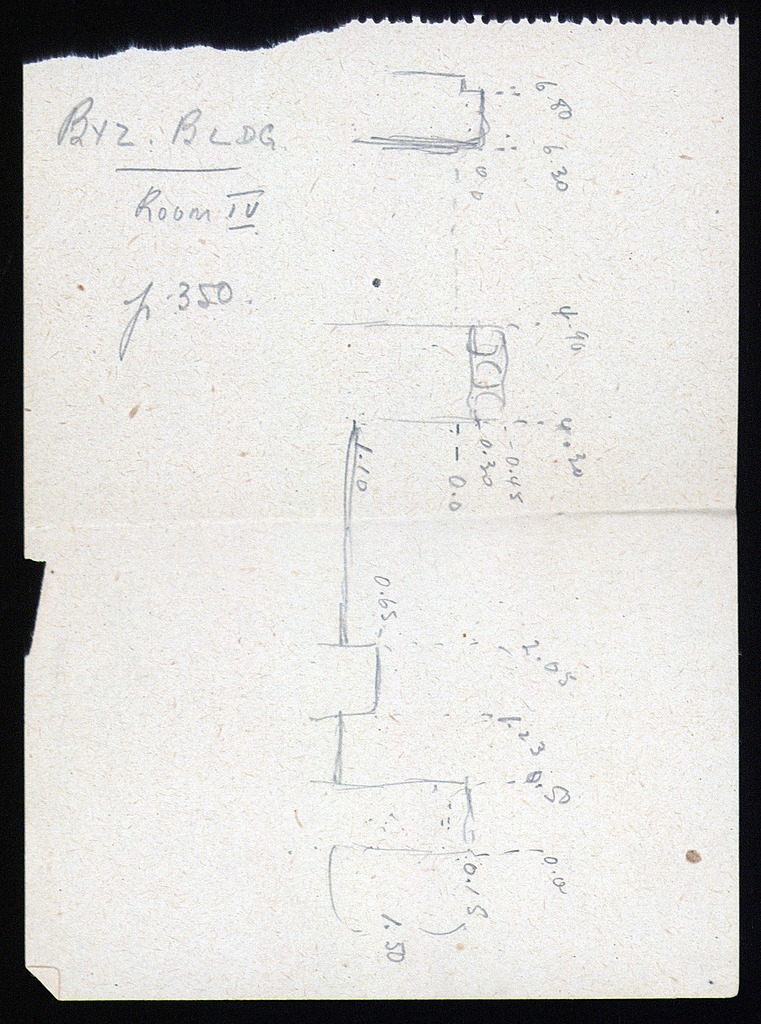 BYZ. BLDG.
Room IV
p. 350.
6.80
6.30
0.0
4.90
4.30
0.45
0.30
0.0
1.10
0.65
2.05
1.23
0.50
0.0
0.15
1.50